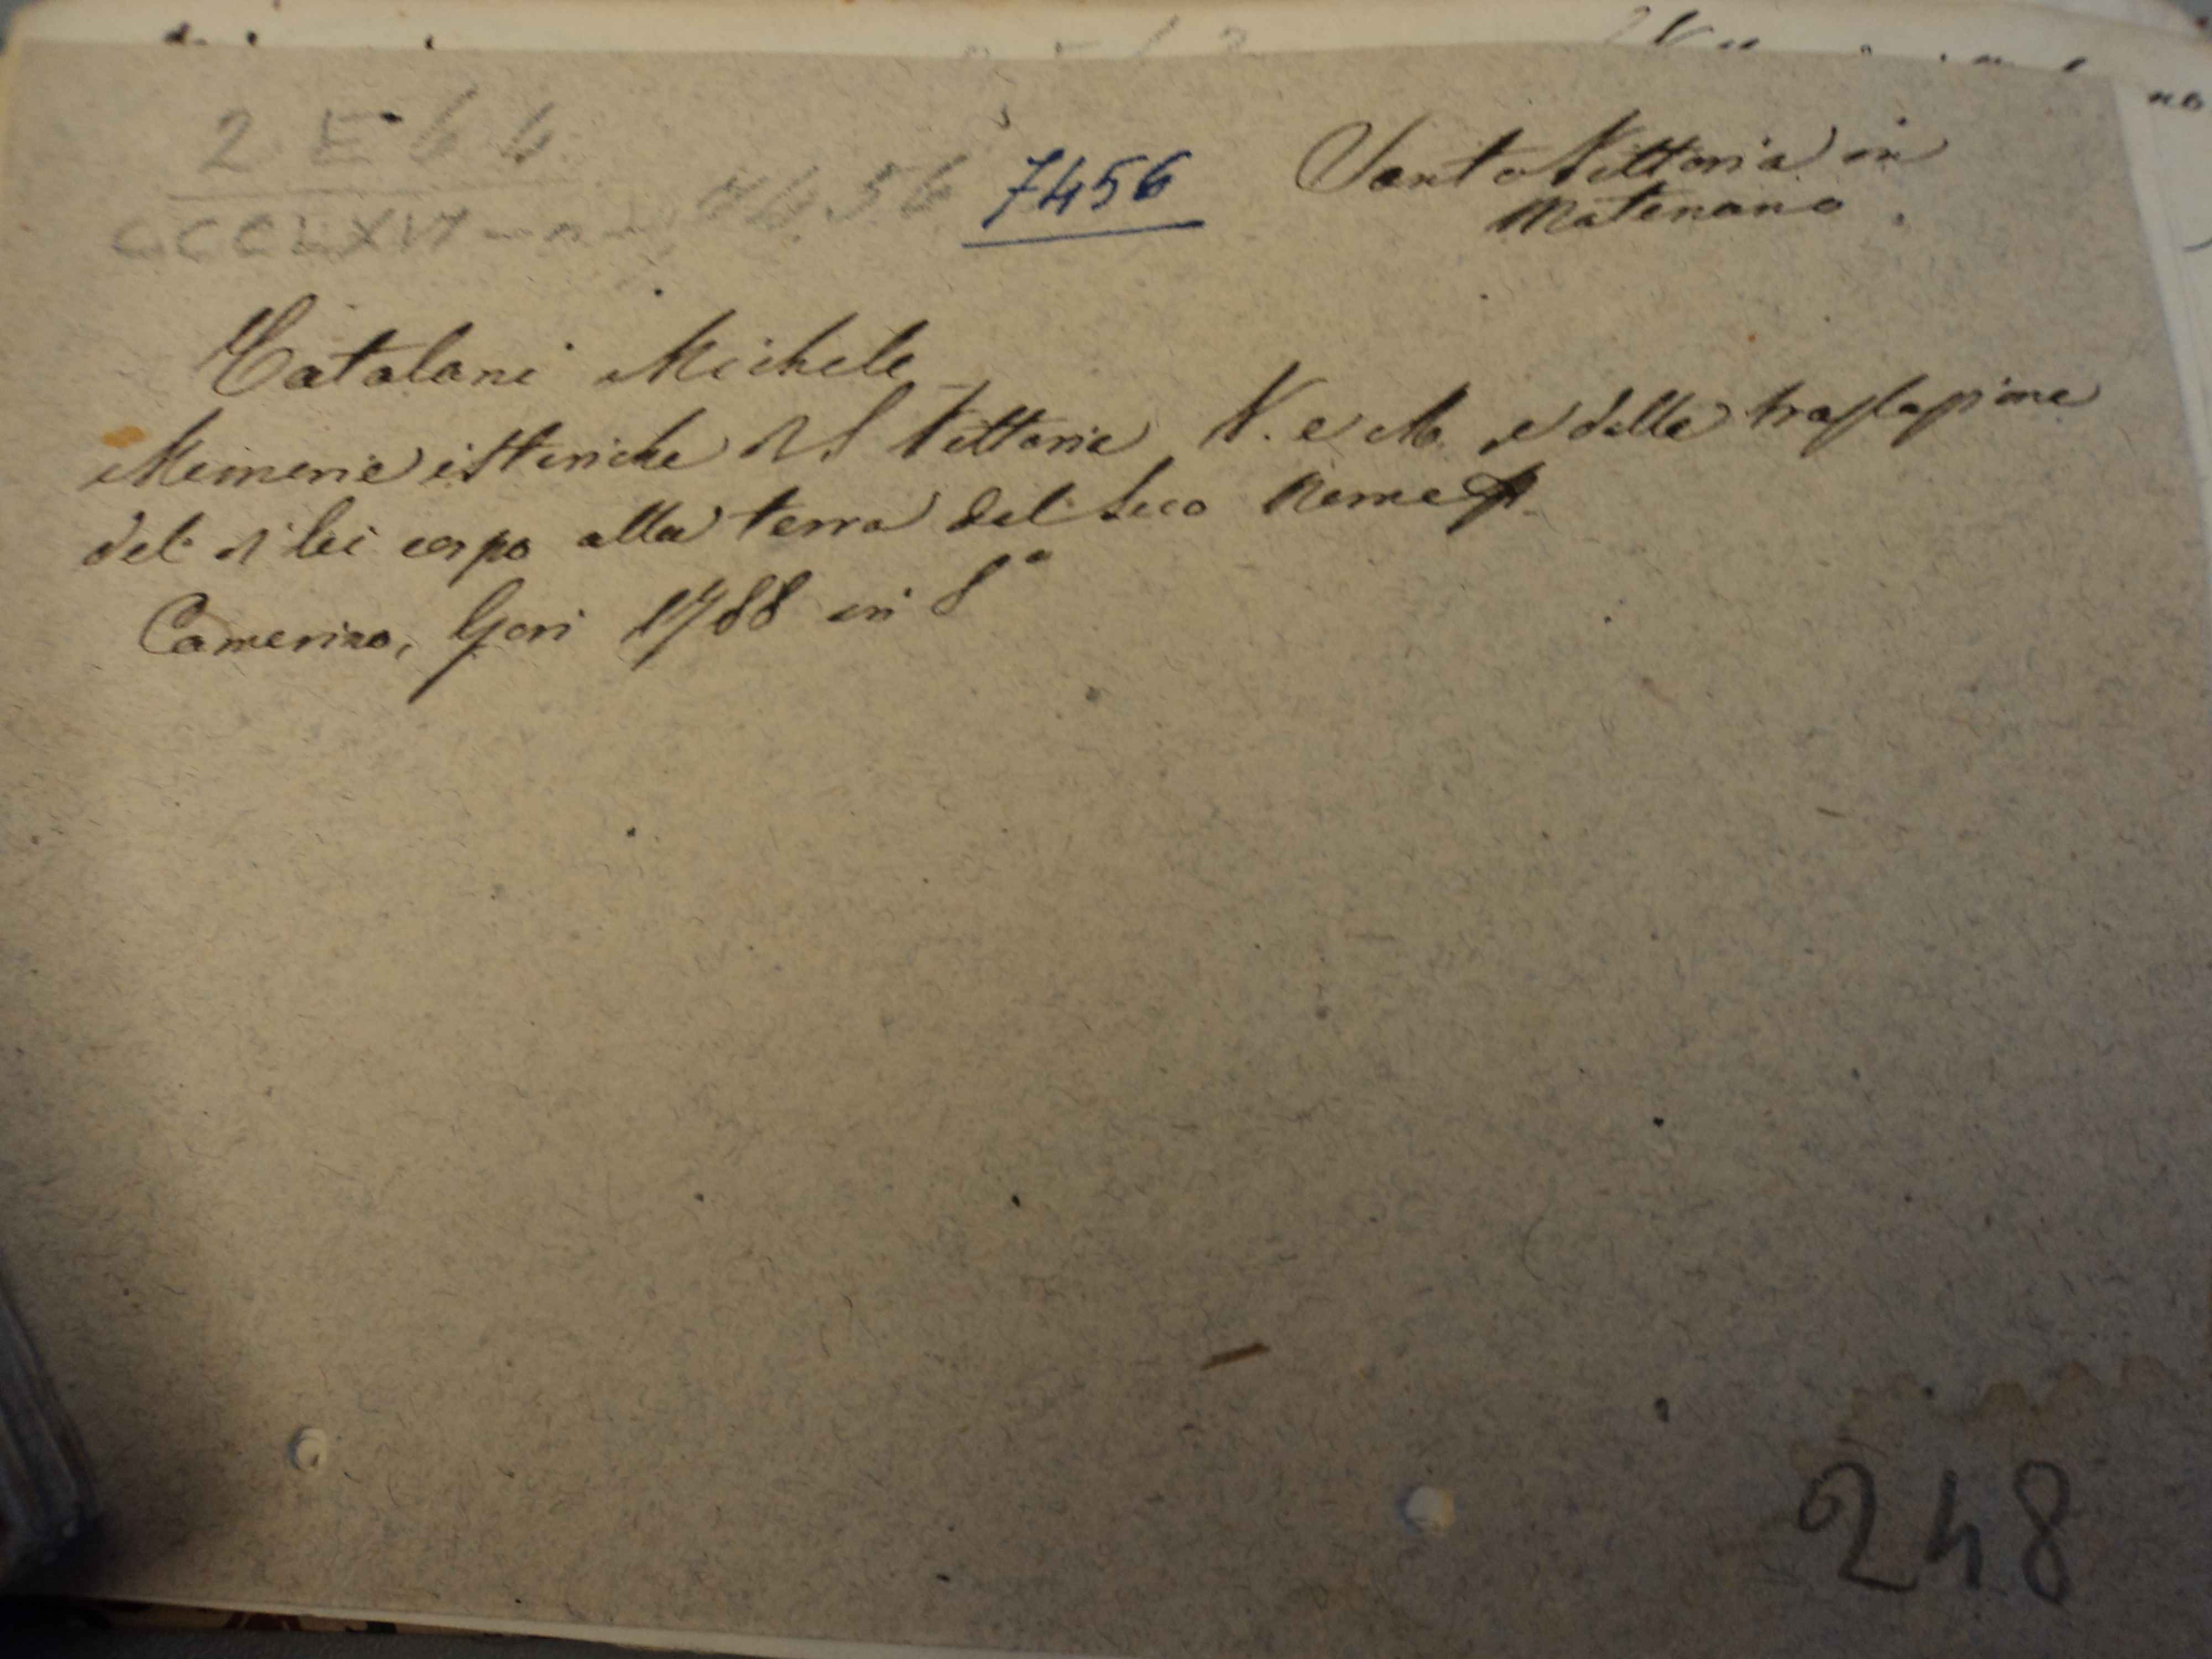 2 E 44
CCCLXVI - n - 7456 7456
Santa Vittoria in
Matenano.
Catalani Michele
Memorie istoriche di S Vittoria V. e M. e della traslazione
del di lei corpo alla terra del suo nome
Camerino, Gori 1788 in 8°
248